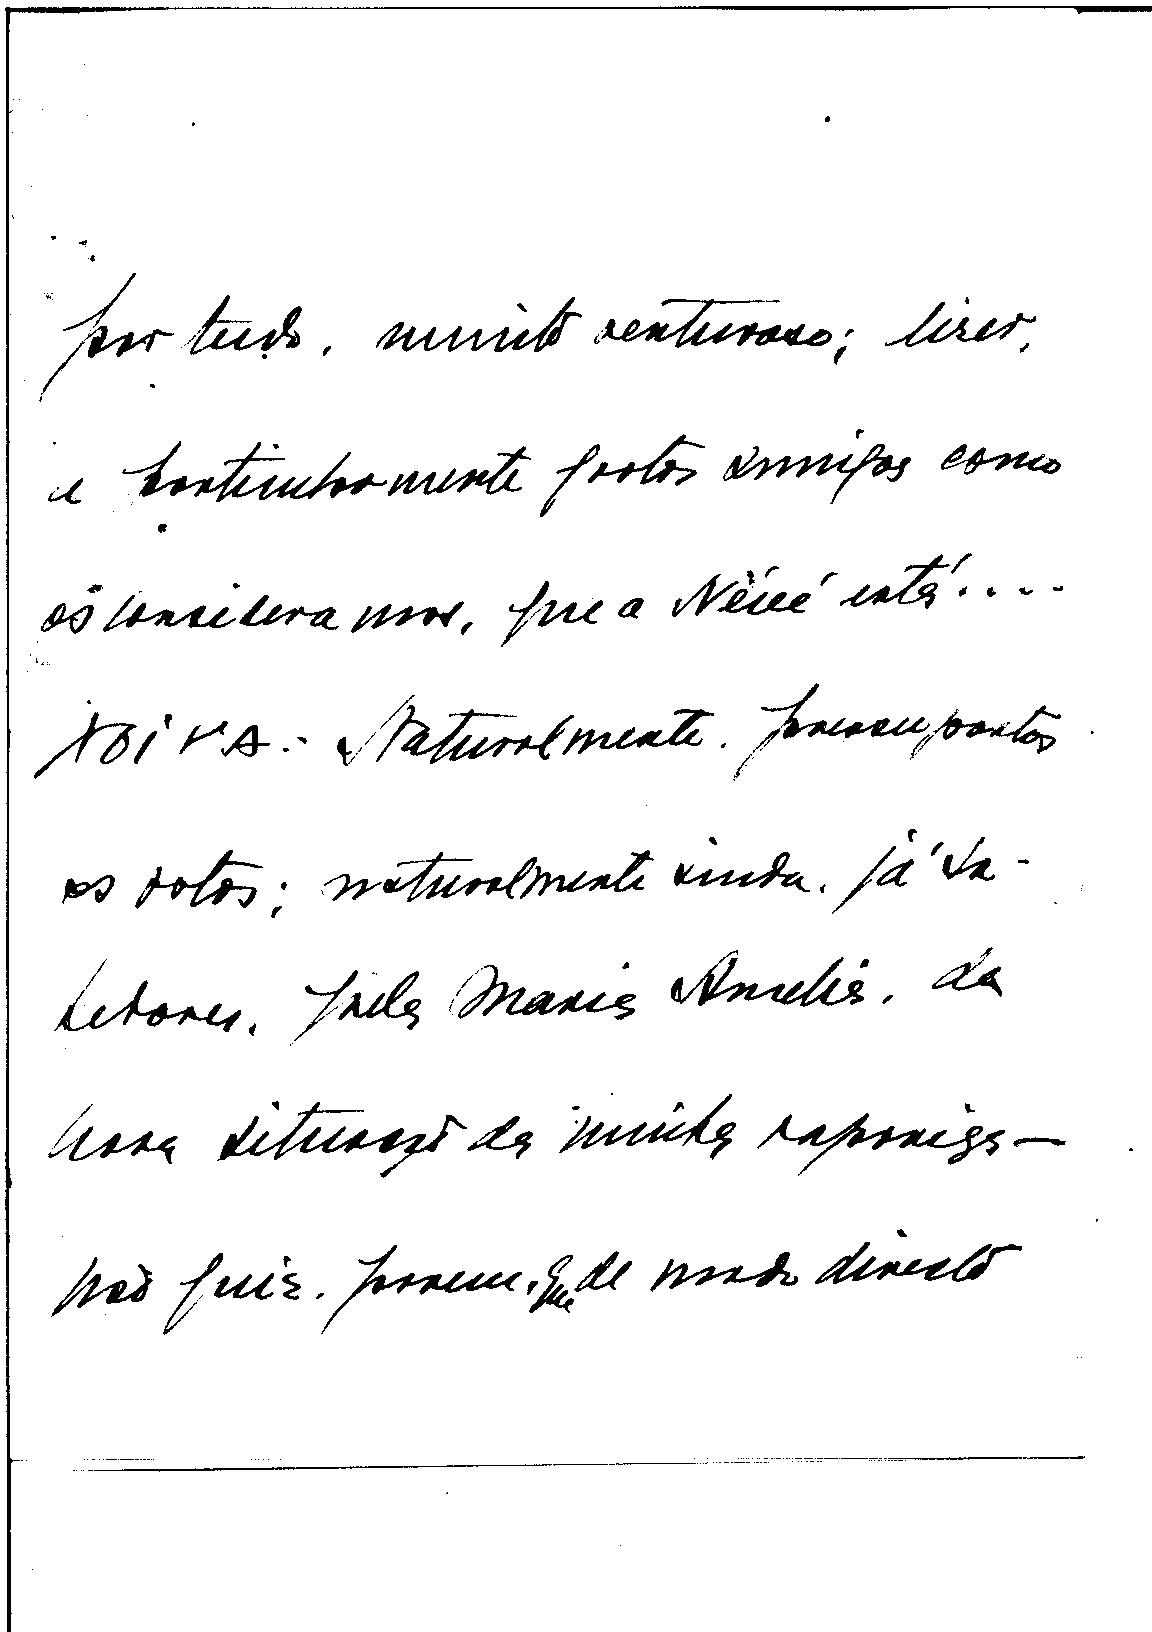 por tudo, muito venturoso; dizer,
e particularmente gratos amigos como
os consideramos, que a Néné está....
NOIVA.- Naturalmente, pressupostos
os votos; naturalmente ainda, já sa-
bedores, pela Maria Amelia, da
nova situação da minha rapariga—
não quiz, porem, que de modo directo